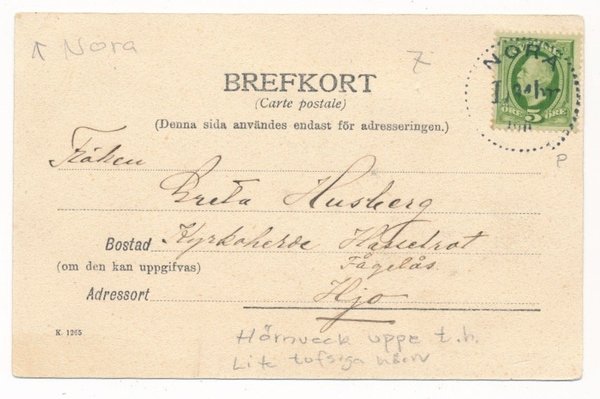 ↑ Nora
7
NORA
BREFKORT
(Carte postale)
(Denna sida användes endast för adresseringen.)
ÖRE 5 ÖRE
P
Fröken
Greta Husberg
Bostad Kyrkoherde Hasselrot
(om den kan uppgifvas) Fågelås
Adressort Hjo
K. 1265
Hörnveck uppe t.h.
Lite tofsiga hörn